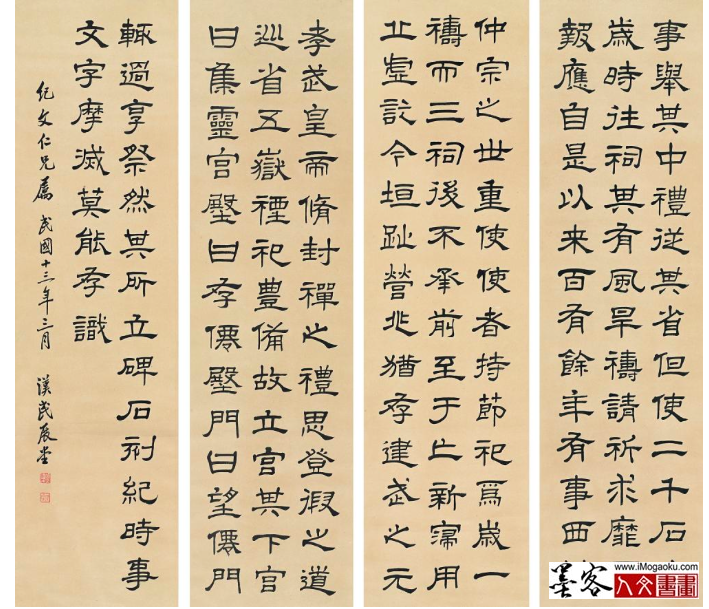 事舉其中禮從其省但使二千石
歲時往祠其有風旱禱請祈求靡
報應自是以来百有餘年有事西
仲宗之世重使使者持節祀焉歲一
禱而三祠後不承前至于亡新寖用
丘虛訖今垣趾營兆猶存建武之元
孝武皇帝脩封禪之禮思登徦之道
巡省五嶽禋祀豊備故立宮其下宮
曰集靈宮壂曰存僊壂門曰望僊門
輒過亨祭然其所立碑石刻紀時事
文字摩滅莫能存識
紀文仁兄屬 民國十三年三月 漢民展堂
墨客
www.iMogaoku.com
人文書畫